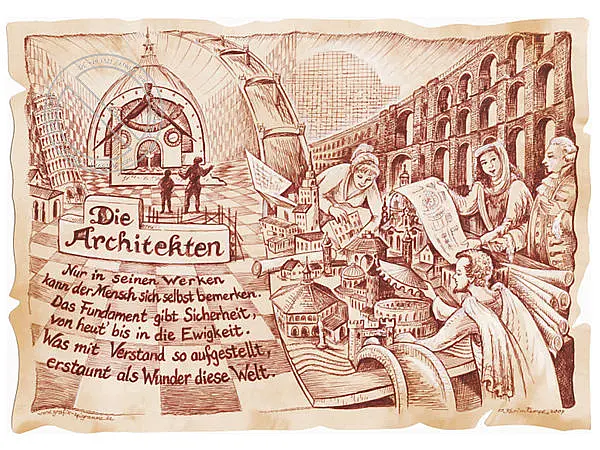 Die
Architekten
Nur in seinen Werken
kann der Mensch sich selbst bemerken.
Das Fundament gibt Sicherheit,
von heut' bis in die Ewigkeit.
Was mit Verstand so aufgestellt,
erstaunt als Wunder diese Welt.
2009